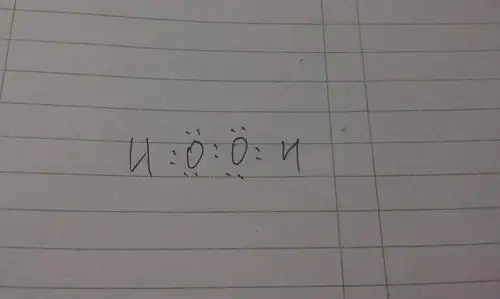 H : Ö : Ö : H